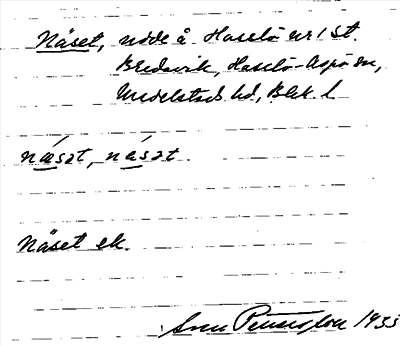 Näset, udde å Hasslö nr 1 St.
Bredavik, Hasslö-Aspö sn,
Medelstads hd, Blek. l.
næ̀sət, nàsət.
Näset ek.
Sven Petersson 1933